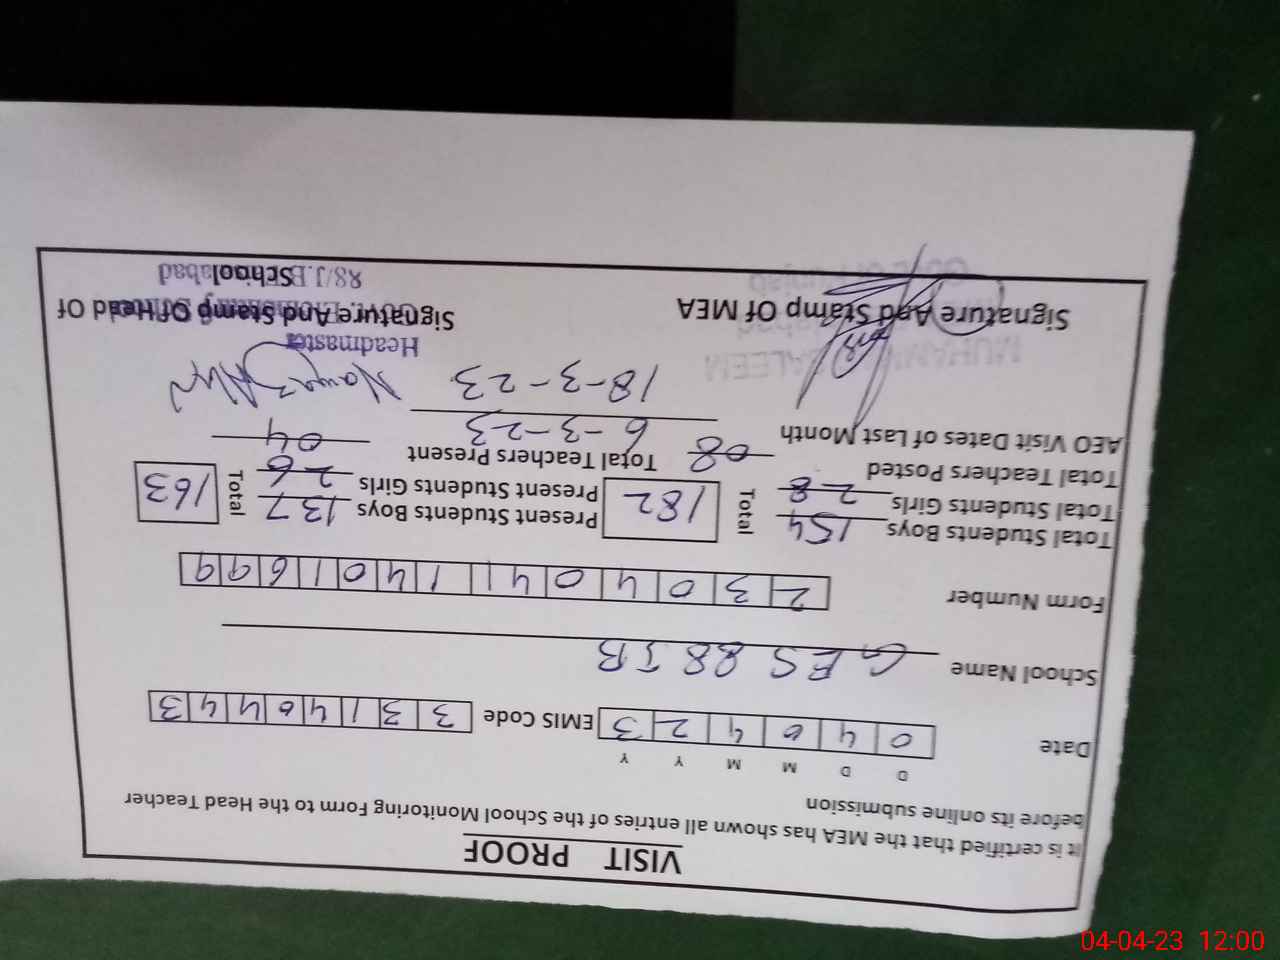 VISIT PROOF
It is certified that the MEA has shown all entries of the School Monitoring Form to the Head Teacher
before its online submission
D D M M Y Y
Date 0 4 0 4 2 3 EMIS Code 3 3 1 4 0 4 4 3
School Name GES 88 JB
Form Number 2 3 0 4 0 4 1 1 4 0 1 6 9 9
Total Students Boys 154 Total 182 Present Students Boys 137 Total 163
Total Students Girls 28 Present Students Girls 26
Total Teachers Posted 08 Total Teachers Present 04
AEO Visit Dates of Last Month 6-3-23
18-3-23
Headmaster
Signature And Stamp Of MEA Signature And Stamp Of Head Of
School
88/J.B
04-04-23 12:00